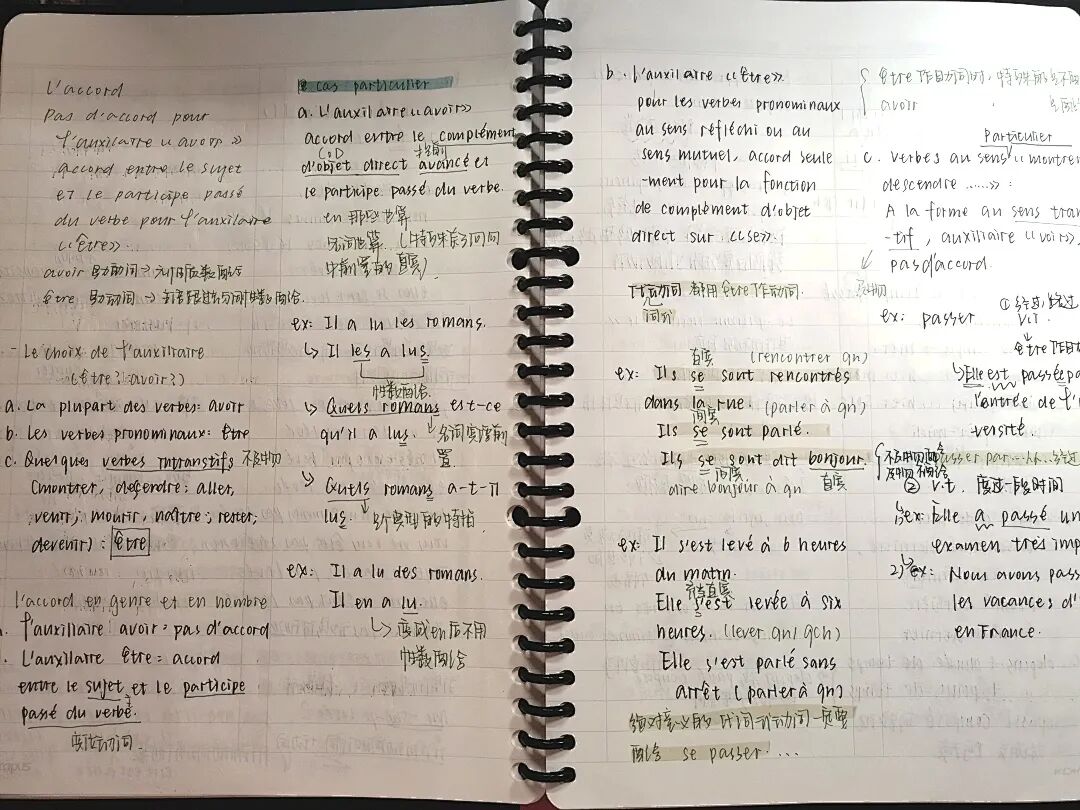 L'accord
Pas d'accord pour
l'auxilaire «avoir»
accord entre le sujet
et le participe passé
du verbe pour l'auxilaire
«être».
avoir 助动词→
être 助动词→
- Le choix de l'auxiliaire
(être? avoir?)
a. La plupart des verbes: avoir
b. Les verbes pronominaux: être
c. Quelques verbes intranstifs 不及物
(montrer, descendre; aller,
venir; mourir, naître; rester,
devenir): être
l'accord en genre et en nombre
l'auxiliaire avoir: pas d'accord
. L'auxiliaire être: accord
entre le sujet et le participe
passé du verbe.
cas particulier
a. L'auxiliaire «avoir»
accord entre le complément
COD 提前
d'objet direct avancé et
le participe passé du verbe.
ex: Il a lu les romans.
↳ Il les a lus.
性数配合
↳ Quels romans est-ce
qu'il a lus. ↳ 名词宾语前
置.
↳ Quels romans a-t-il
lus
ex: Il a lu des romans.
Il en a lu.
↳ 变成en后不用
性数配合
b. l'auxiliaire «être»
pour les verbes pronominaux
au sens réfléchi ou au
sens mutuel, accord seule
-ment pour la fonction
de complément d'objet
direct sur «se».
都用être作助动词.
直宾 (rencontrer qn)
ex: Ils se sont rencontrés
dans la rue. (parler à qn)
间宾
Ils se sont parlé.
Ils se sont dit bonjour.
间宾 直宾
dire bonjour à qn
ex: Il s'est levé à 6 heures
du matin.
直宾
Elle s'est levée à six
heures. (lever qn/qch)
Elle s'est parlé sans
arrêt (parler à qn)
绝对意义的代词式动词一定要
配合 se passer. ...
être作助动词时,
avoir
Particulier
c. verbes au sens «montrer
descendre ......»:
A la forme au sens tran
-tif, auxiliaire «voir».
pas d'accord.
及物
ex: passer ① 经过,
v.i.
être作
↳ Elle est passée pa
l'entrée de l'
versité.
passer par
② v.t. 度过一段时间
1) ex: Elle a passé un
examen très imp
2) ex: Nous avons pass
les vacances d'
en France.